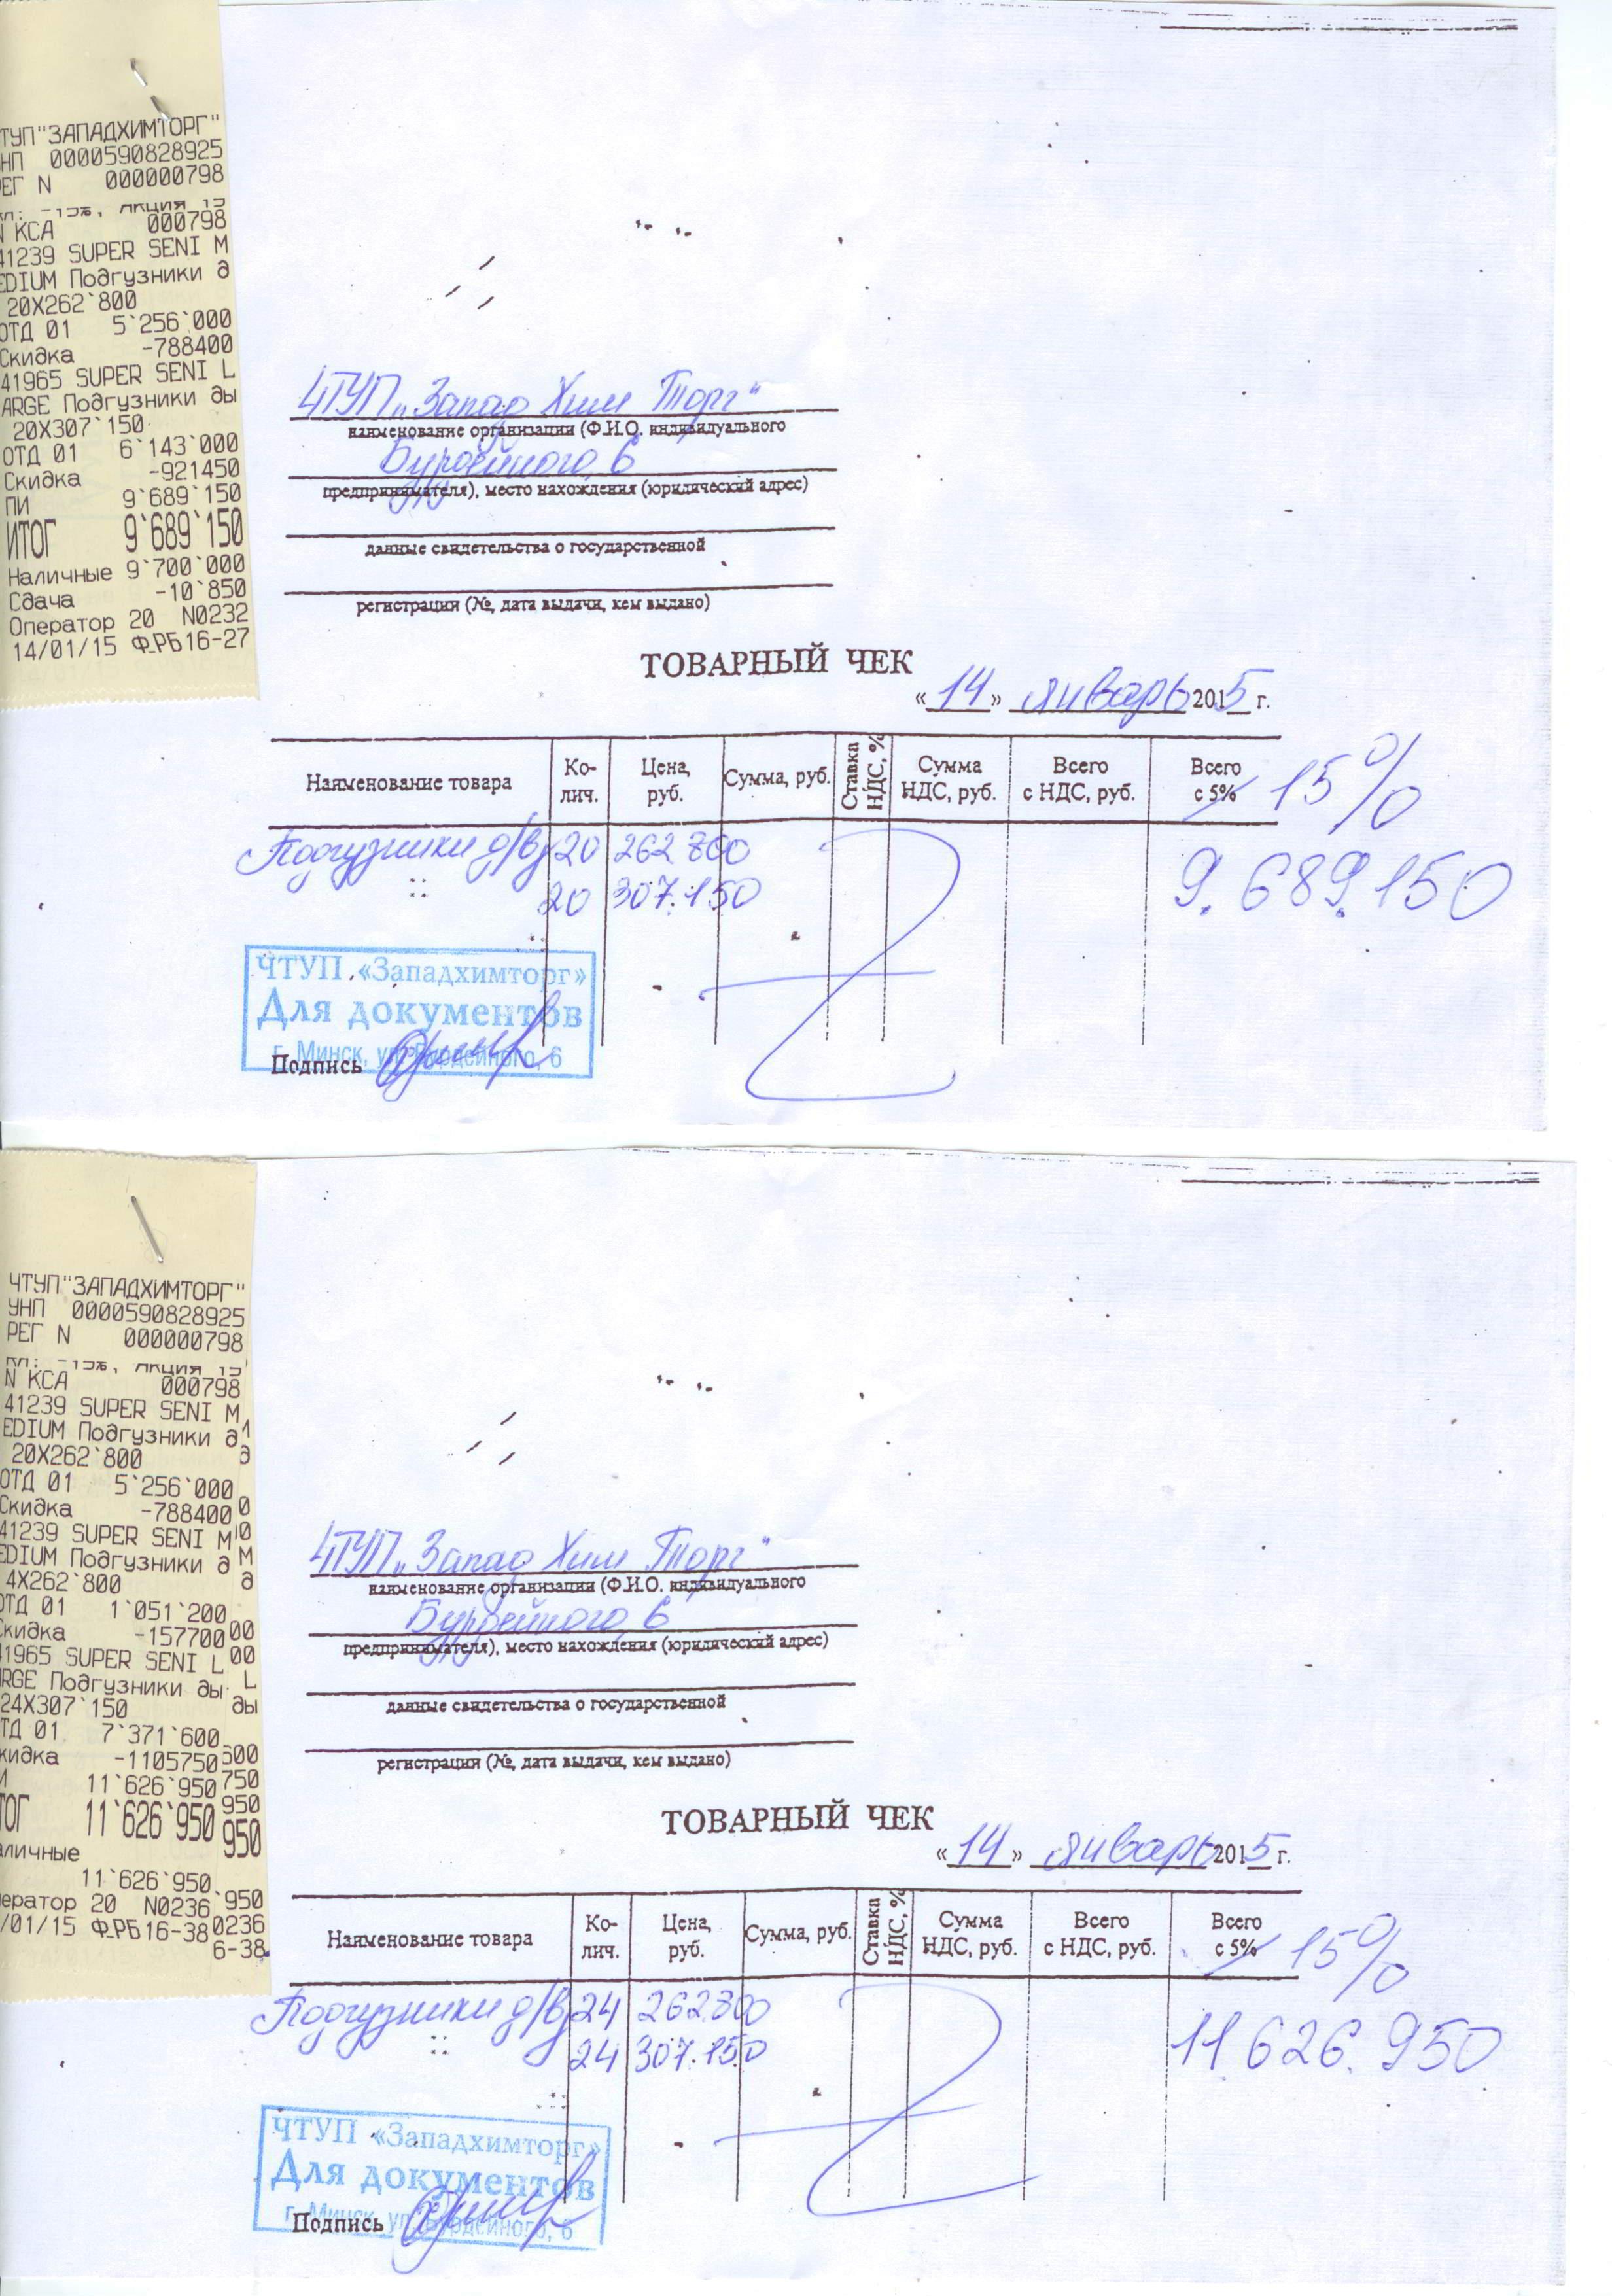 ТУП"ЗАПАДХИМТОРГ"
НП 0000590828925
ЕГ N 000000798
-15%, Акция 15
N КСА 000798
41239 SUPER SENI M
EDIUM Подгузники д
20X262`800
ОТД 01 5`256`000
Скидка -788400
41965 SUPER SENI L
ARGE Подгузники ды
20X307`150
ОТД 01 6`143`000
Скидка -921450
ПИ 9`689`150
ИТОГ 9`689`150
Наличные 9`700`000
Сдача -10`850
Оператор 20 N0232
14/01/15 Ф_РБ16-27
ЧТУП „Запад Хим Торг"
наименование организации (Ф.И.О. индивидуального
Бурдейного 6
предпринимателя), место нахождения (юридический адрес)
данные свидетельства о государственной
регистрации (№, дата выдачи, кем выдано)
ТОВАРНЫЙ ЧЕК
«14» январь 2015 г.
Наименование товара Ко-лич. Цена, руб. Сумма, руб. Ставка НДС, % Сумма НДС, руб. Всего с НДС, руб. Всего с 5% 15%
Подгузники д/в 20 262 800 9.689.150
20 307.150
ЧТУП «Западхимторг»
Для документов
г. Минск, ул. Бурдейного, 6
Подпись
ЧТУП"ЗАПАДХИМТОРГ"
УНП 0000590828925
РЕГ N 000000798
-15%, Акция 15
N КСА 000798
41239 SUPER SENI M
EDIUM Подгузники д
20X262`800
ОТД 01 5`256`000
Скидка -788400
41239 SUPER SENI M
EDIUM Подгузники д
4X262`800
ОТД 01 1`051`200
Скидка -157700
41965 SUPER SENI L
RGE Подгузники ды
24X307`150
ТД 01 7`371`600
кидка -1105750
11`626`950
ТОГ 11`626`950
аличные
11`626`950
ератор 20 N0236
/01/15 Ф_РБ16-38
0236
6-38
ЧТУП „Запад Хим Торг"
наименование организации (Ф.И.О. индивидуального
Бурдейного 6
предпринимателя), место нахождения (юридический адрес)
данные свидетельства о государственной
регистрации (№, дата выдачи, кем выдано)
ТОВАРНЫЙ ЧЕК
«14» январь 2015 г.
Наименование товара Ко-лич. Цена, руб. Сумма, руб. Ставка НДС, % Сумма НДС, руб. Всего с НДС, руб. Всего с 5% 15%
Подгузники д/в 24 262.800 11.626.950
24 307.150
ЧТУП «Западхимторг»
Для документов
г. Минск, ул. Бурдейного, 6
Подпись